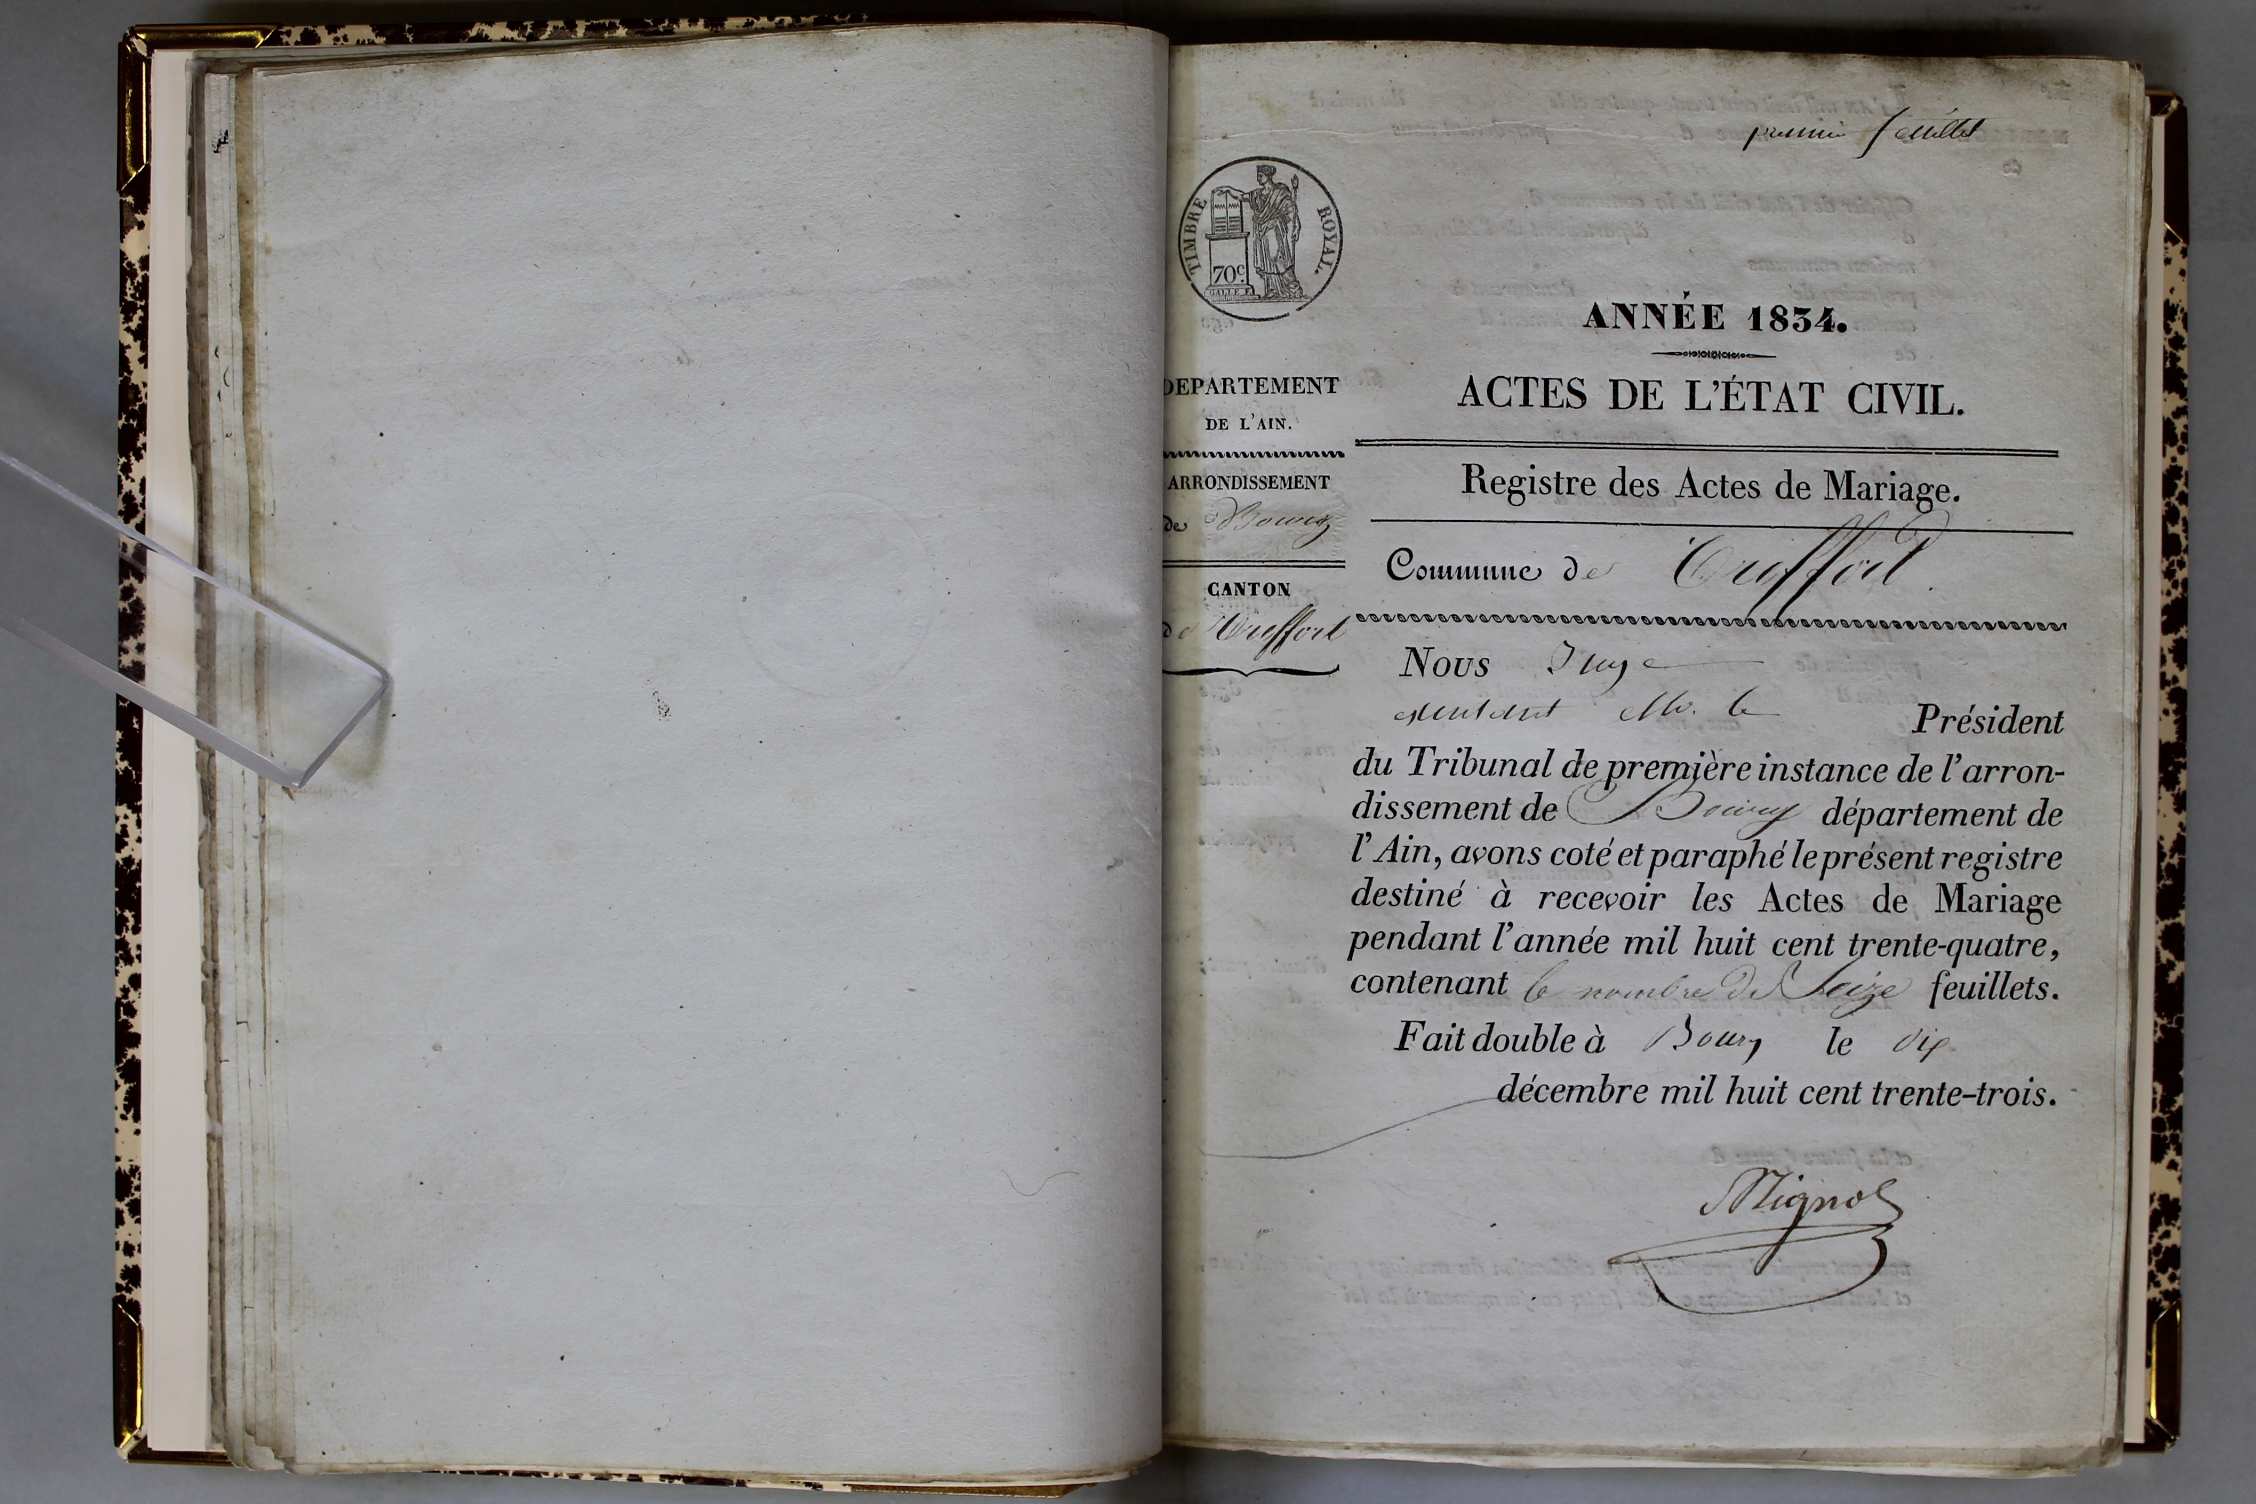 premier feuillet
TIMBRE ROYAL.
70c.
GALLE F.
DEPARTEMENT
DE L'AIN.
ARRONDISSEMENT
de Bourg
CANTON
de Treffort
ANNÉE 1834.
ACTES DE L'ÉTAT CIVIL.
Registre des Actes de Mariage.
Commune de Treffort
Nous Juge
Mr. le Président
du Tribunal de première instance de l'arron-
dissement de Bourg département de
l'Ain, avons coté et paraphé le présent registre
destiné à recevoir les Actes de Mariage
pendant l'année mil huit cent trente-quatre,
contenant le nombre de Seize feuillets.
Fait double à Bourg le dix
décembre mil huit cent trente-trois.